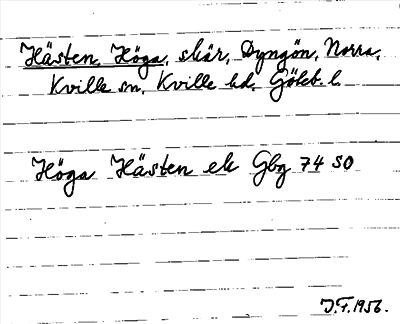 Hästen, Höga, skär, Dyngön, Norra,
Kville sn, Kville hd, Göteb. l.
Höga Hästen ek Gbg 74 SO
J.F. 1956.